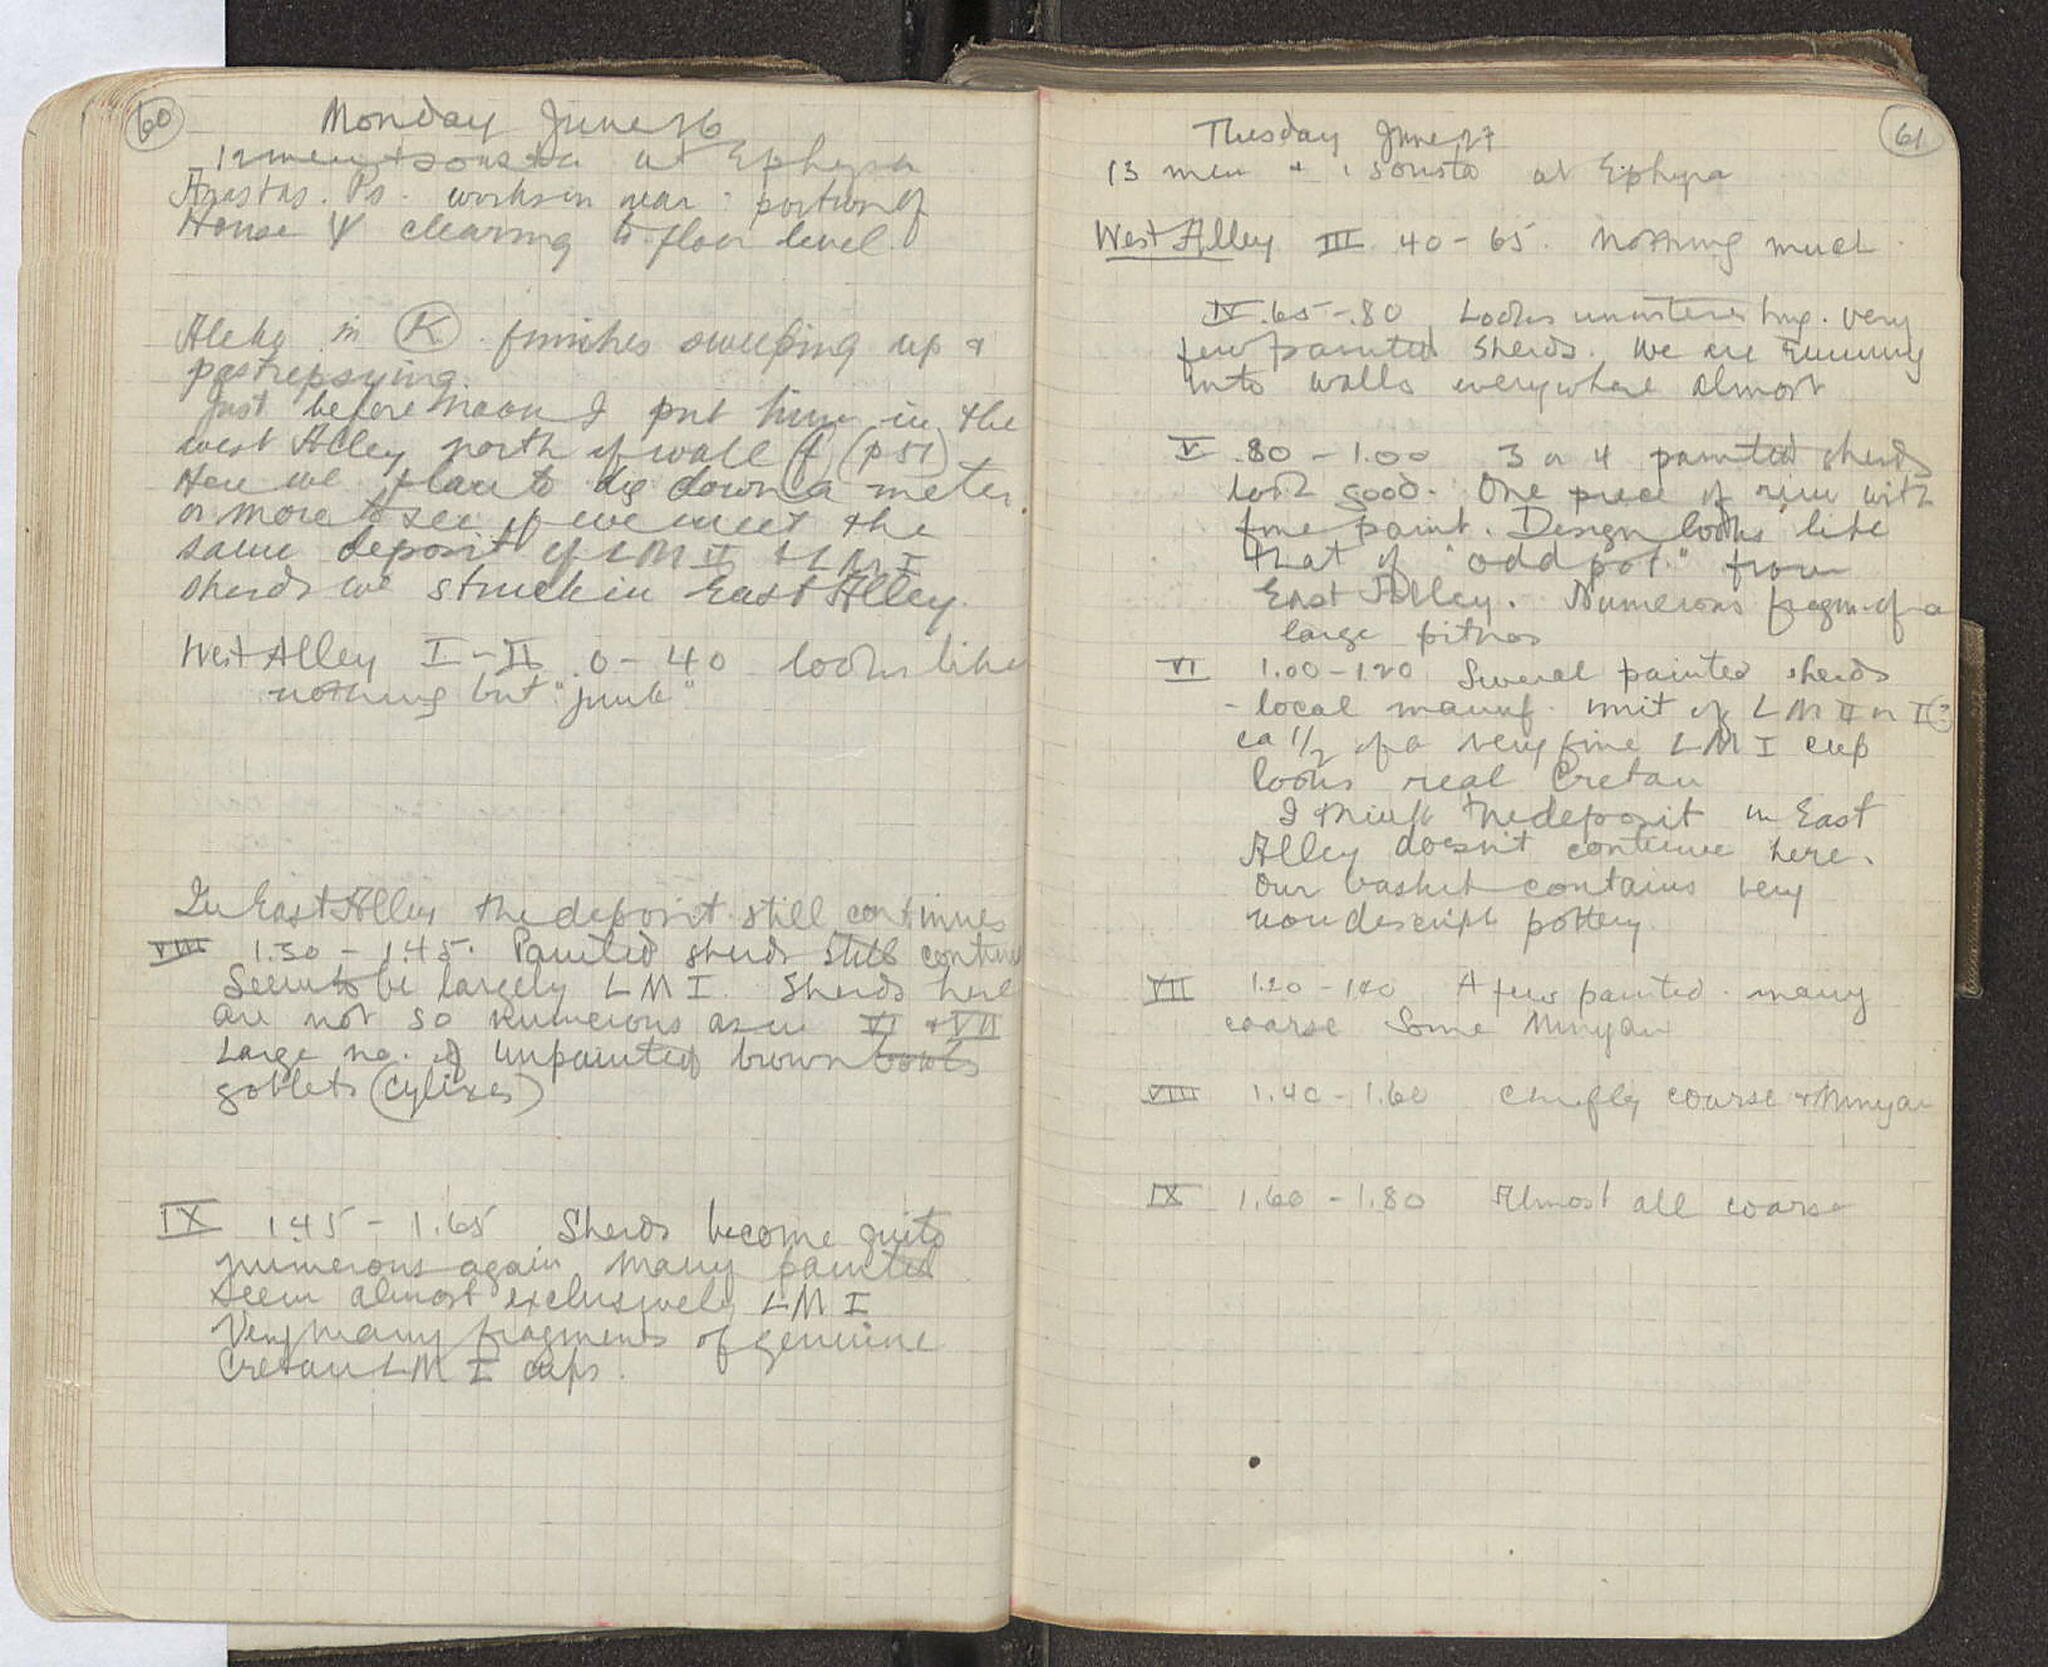 60
Monday June 26
12 men + 1 sousta at Ephyra
Anastas. Ps. works in rear portion of
House Ψ clearing to floor level.
Aleko in K finishes sweeping up +
pastrepsying.
Just before noon I put him in the
west Alley north of wall f (p 51)
Here we plan to dig down a meter
or more to see if we meet the
same deposit of LM II + LM I
sherds we struck in East Alley.
West Alley I - II 0 - 40 looks like
nothing but "junk"
In East Alley the deposit still continues
VIII 1.30 - 1.45. Painted sherds still continue
Seem to be largely LM I. Sherds here
are not so numerous as in VI + VII
Large no. of unpainted brown bowls
goblets (cylixes)
IX 1.45 - 1.65 Sherds become quite
numerous again many painted
seem almost exclusively LM I
Very many fragments of genuine
Cretan LM I cups.
61
Tuesday June 27
13 men + 1 sousta at Ephyra
West Alley III 40 - 65. Nothing much
IV .65 - .80 Looks uninteresting. very
few painted sherds. We are running
into walls everywhere almost
V .80 - 1.00 3 or 4 painted sherds
look good. One piece of rim with
fine paint. Design looks like
that of "odd pot" from
East Alley. Numerous fragm. of a
large pithos
VI 1.00 - 1.20 Several painted sherds
- local manuf. imit of LM II or I(?)
ca 1/2 of a very fine LM I cup
looks real Cretan
I think the deposit in East
Alley doesn't continue here.
Our basket contains very
nondescript pottery
VII 1.20 - 1.40 A few painted. many
coarse Some Minyan
VIII 1.40 - 1.60 Chiefly coarse + Minyan
IX 1.60 - 1.80 Almost all coarse